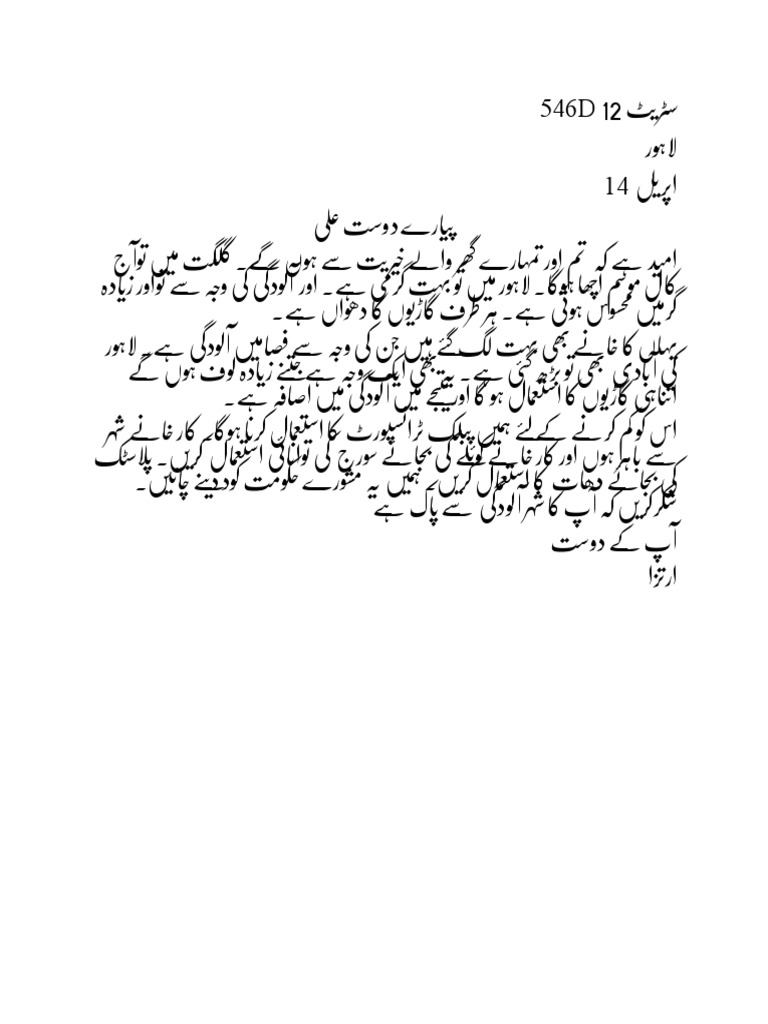 سٹریٹ 12 546D
لاہور
اپریل 14
پیارے دوست علی
امید ہے کہ تم اور تمہارے گھر والے خیریت سے ہوں گے۔ گلگت میں توآج
کال موسم اچھا ہوگا۔ لاہور میں تو بہت گرمی ہے۔ اور آلودگی کی وجہ سے تواور زیادہ
گرمیں محسوس ہوتی ہے۔ ہر طرف گاڑیوں کا دھواں ہے۔
یہاں کا خانے بھی بہت لگ گئے ہیں جن کی وجہ سے فصامیں آلودگی ہے۔ لاہور
کی آبادی بھی تو بڑھ گئی ہے۔ یہ بھی ایک وجہ ہے جتنے زیادہ لوف ہوں گے
اتناہی گاڑیوں کا استعمال ہو گا اور نتیجے میں آلودگی میں اصافہ ہے۔
اس کو کم کرنے کے لئے ہمیں پبلک ٹرانسپورٹ کا استعمال کرنا ہوگا۔ کارخانے شہر
سے باہر ہوں اور کارخانے کوئلے کی بجائے سورج کی توانائی استعمال کریں۔ پلاسٹک
کی بجائے دھات کا استعمال کریں۔ ہمیں یہ مشورے حکومت کودینے چائیں۔
شکر کریں کہ آپ کا شہر آلودگی سے پاک ہے
آپ کے دوست
ارتزا